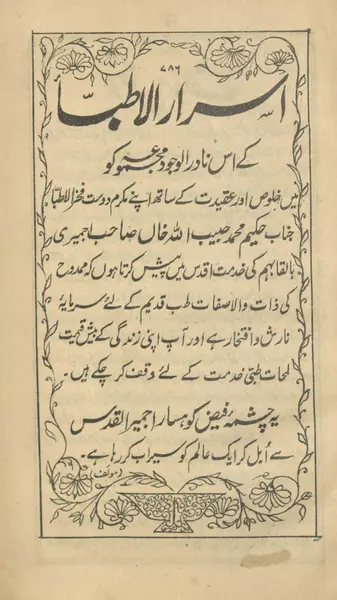 ۷۸۶
اسرار الاطبّا
کے اس نادر الوجود مجموعہ کو
میں خلوص اور عقیدت کے ساتھ اپنے مکرم دوست فخر الاطبّا
جناب حکیم محمد حبیب اللہ خاں صاحب اجمیری
بالقابہم کی خدمت اقدس میں پیش کرتا ہوں کہ ممدوح
کی ذات والا صفات طب قدیم کے لئے سرمایۂ
نازش و افتخار ہے اور آپ اپنی زندگی کے بیش قیمت
لمحات طبّی خدمت کے لئے وقف کر چکے ہیں۔
یہ چشمۂ فیض کوہسار اجمیر القدس
سے اُبل کر ایک عالم کو سیراب کر رہا ہے۔
(مولف)